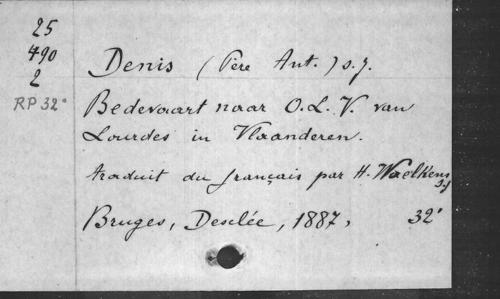 25
490
2
RP 32°
Denis (Père Ant.) s.j.
Bedevaart naar O.L.V. van
Lourdes in Vlaanderen.
traduit du français par H. Waelkens
s.j
Bruges, Desclée, 1887, 32°